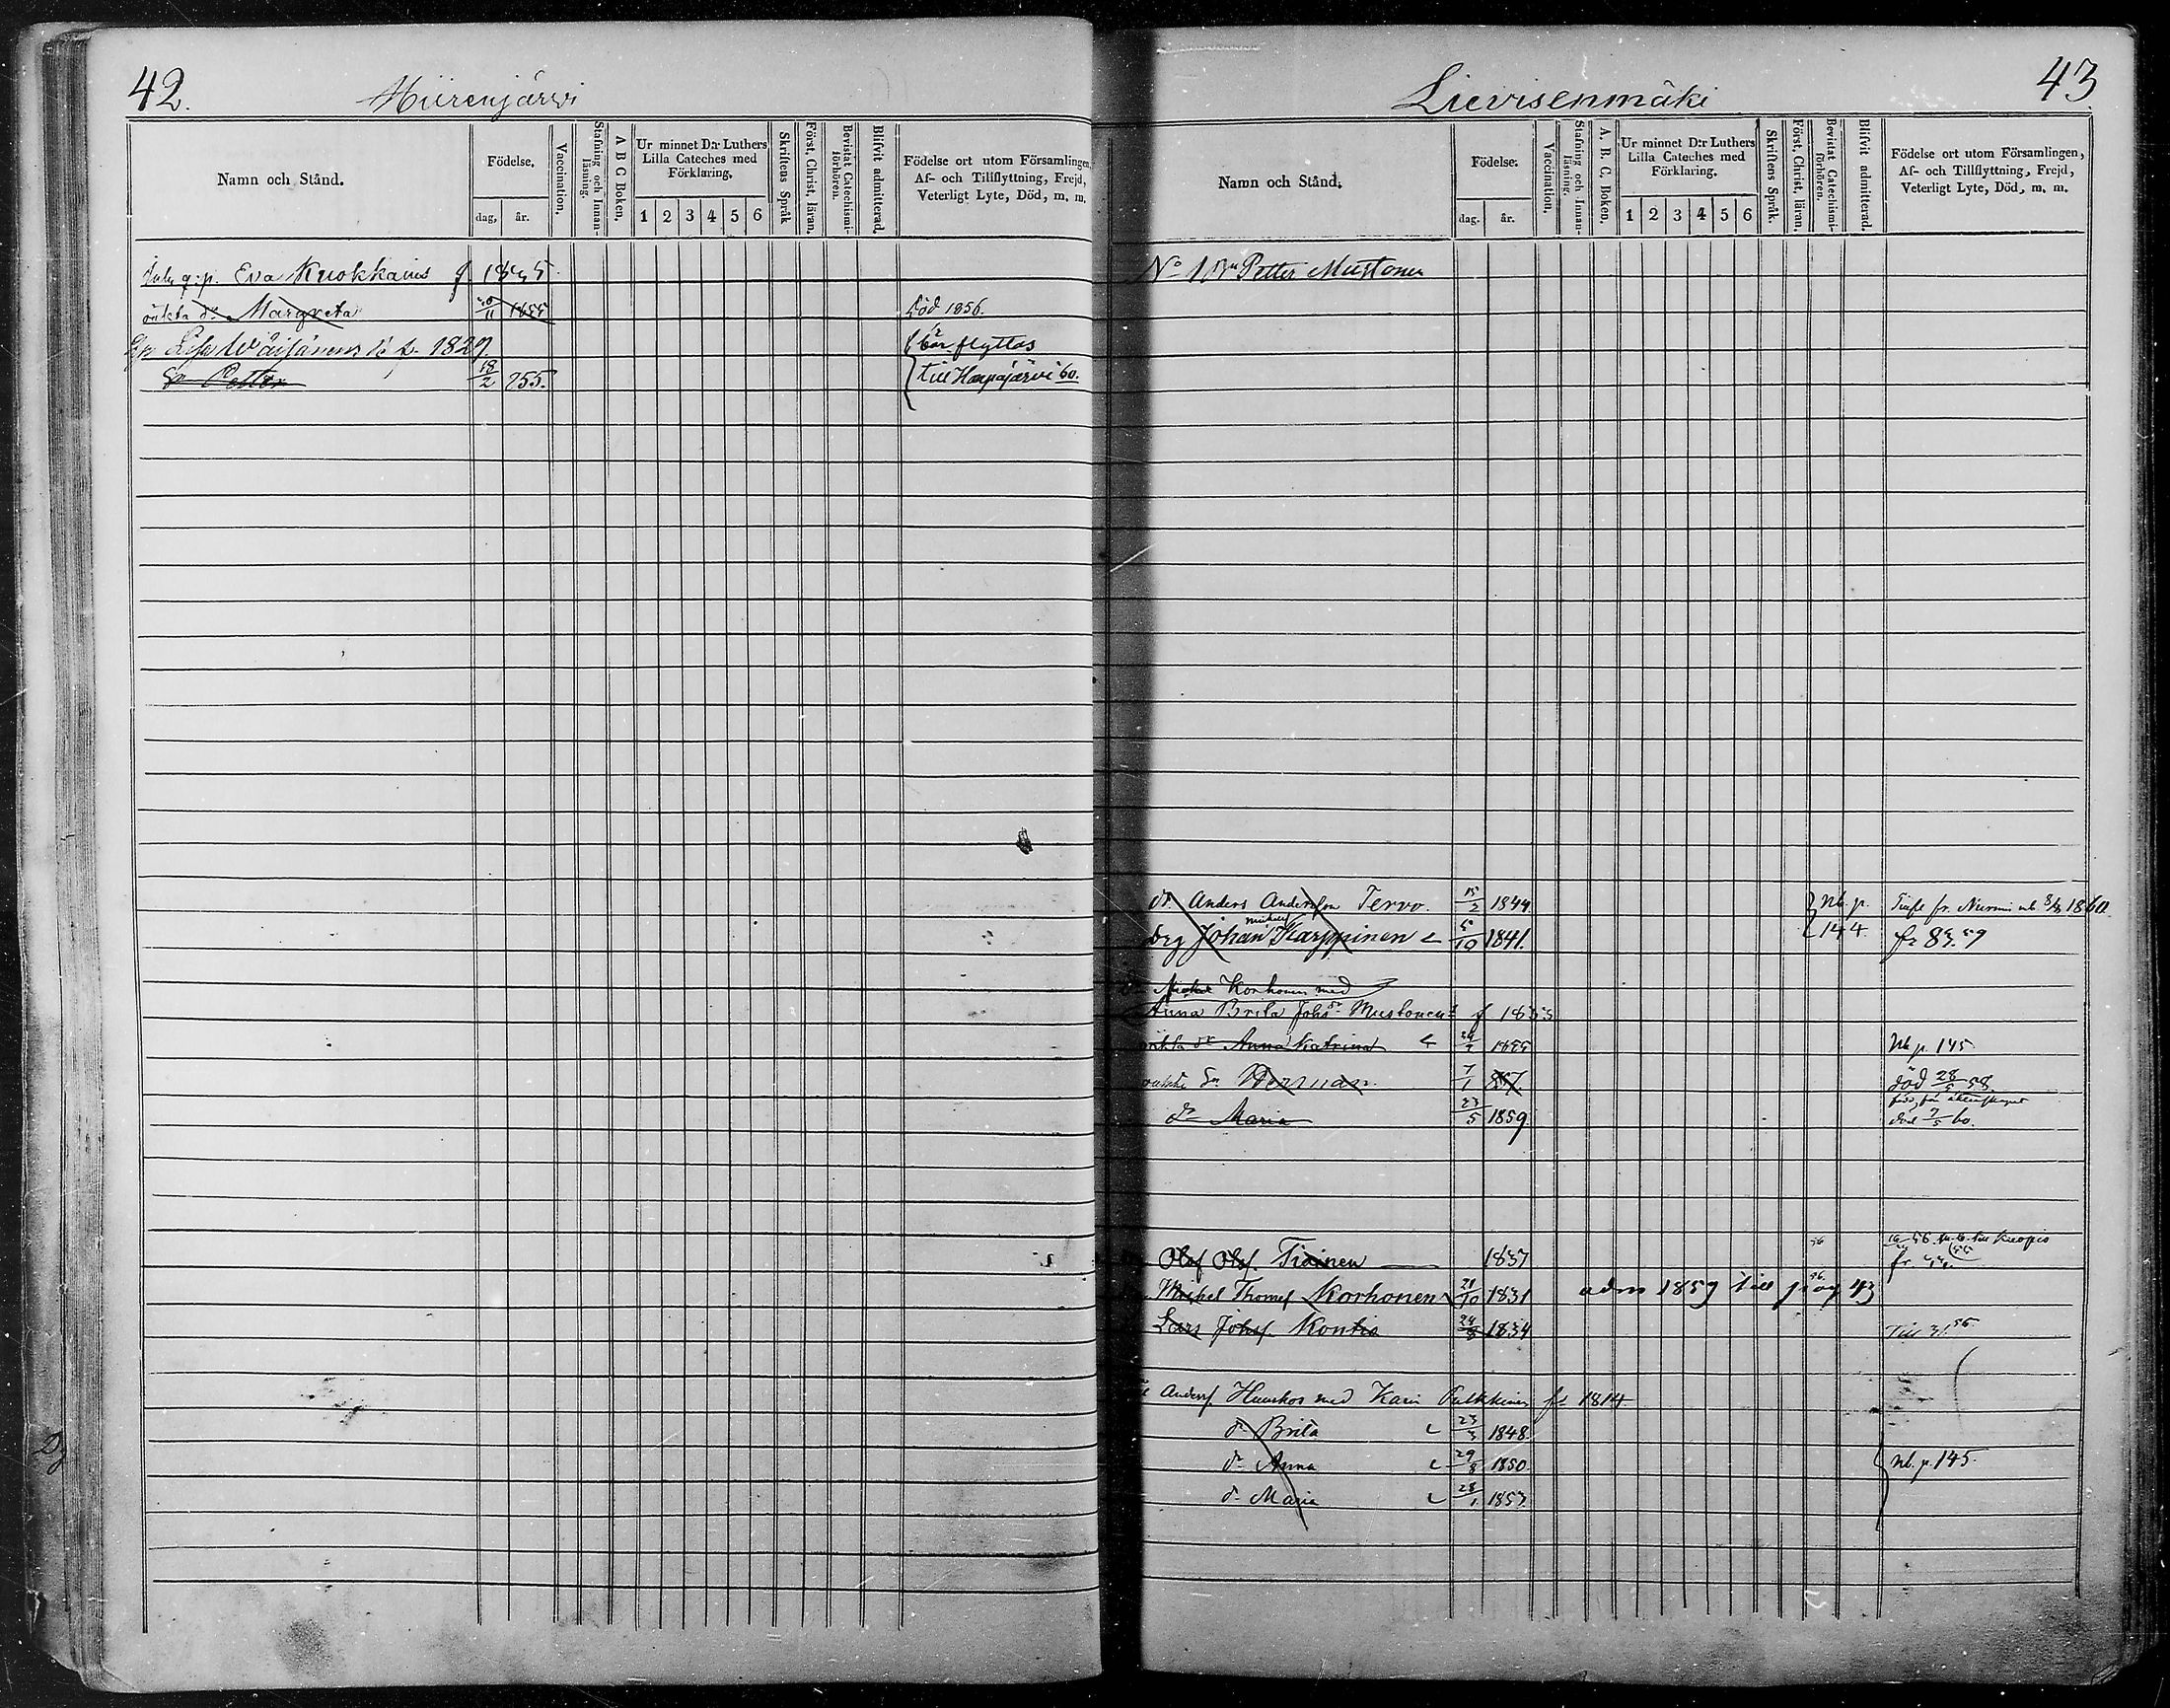 42.
Hiirenjärvi
Namn och Stånd.
Födelse,
dag, år.
Vaccination,
Stafning och Innan-läsning.
A B C Boken,
Ur minnet D:r Luthers Lilla Cateches med Förklaring,
1 2 3 4 5 6
Skriftens Språk
Först. Christ. läran.
Bevistat Catechismi-förhören.
Blifvit admitterad.
Födelse ort utom Församlingen,
Af- och Tillflyttning, Frejd,
Veterligt Lyte, Död, m. m.
Eva Kuokkains f
oäkta dr Margreta 11 1855 död 1856.
Lisa Wäisänens f. 1829. bör flyttas
Sn Petter 18/2 855. till Haapajärvi 60.
43
Lievisenmäki
Namn och Stånd.
Födelse.
dag. år.
Vaccination,
Stafning och Innan-läsning.
A. B. C. Boken,
Ur minnet D:r Luthers Lilla Cateches med Förklaring.
1 2 3 4 5 6
Skriftens Språk.
Först. Christ. läran.
Bevistat Catechismi-förhören.
Blifvit admitterad.
Födelse ort utom Församlingen,
Af- och Tillflyttning, Frejd,
Veterligt Lyte, Död, m. m.
No 1 Petter Mustonen
dr. Anders Andersson Tervo. 15/2 1844. Nb. p. fr. Nurmis 1860
drg Johan Karppinen 5/10 1841. 144 fr 83.59
Michel Korhonen med
Anna Brita Johsdr Mustonen f 1833
oäkta dr Anna Katrina 1855 Nb p. 145
oäkta Sn Herman 7/1 857. död 28/5 58.
dr Maria 23/5 1859. död 7/5 60.
Olof Olofs. Tiainen 1837 56 till Kuopio
Michel Thomas Korhonen 21/10 1831 adm 1859 till pag 43
Lars Johs. Kontio 24/8 1834 Till 31.56
Anders. Huuskos med Karin Pulkkinen f. 1814
dr Brita 23/3 1848.
dr Anna 29/8 1850. Nb. p. 145.
dr Maria 28/1 1853